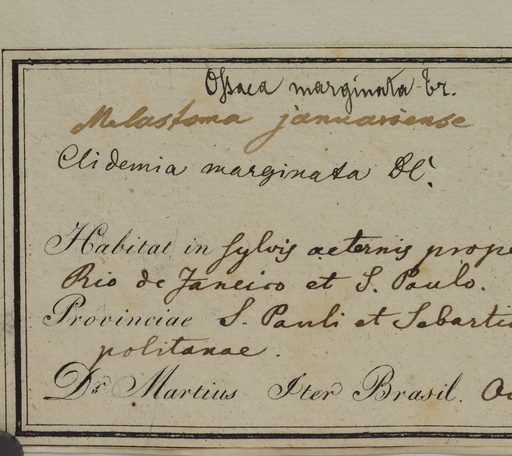 Ossaea marginata Tr.
Melastoma januariense
Clidemia marginata DC.
Habitat in sylvis aeternis prope
Rio de Janeiro et S. Paulo.
Provinciae S. Pauli et Sebastia
politanae.
Dr Martius Iter Brasil.